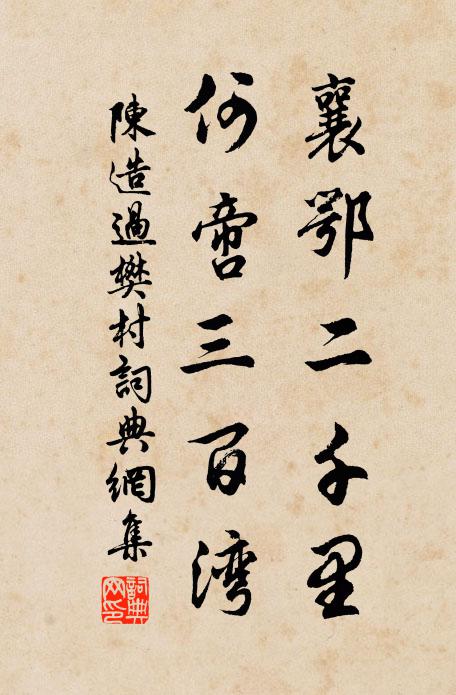 襄鄂二千里
何啻三百湾
陳造過樊村詞典網集
詞典網印